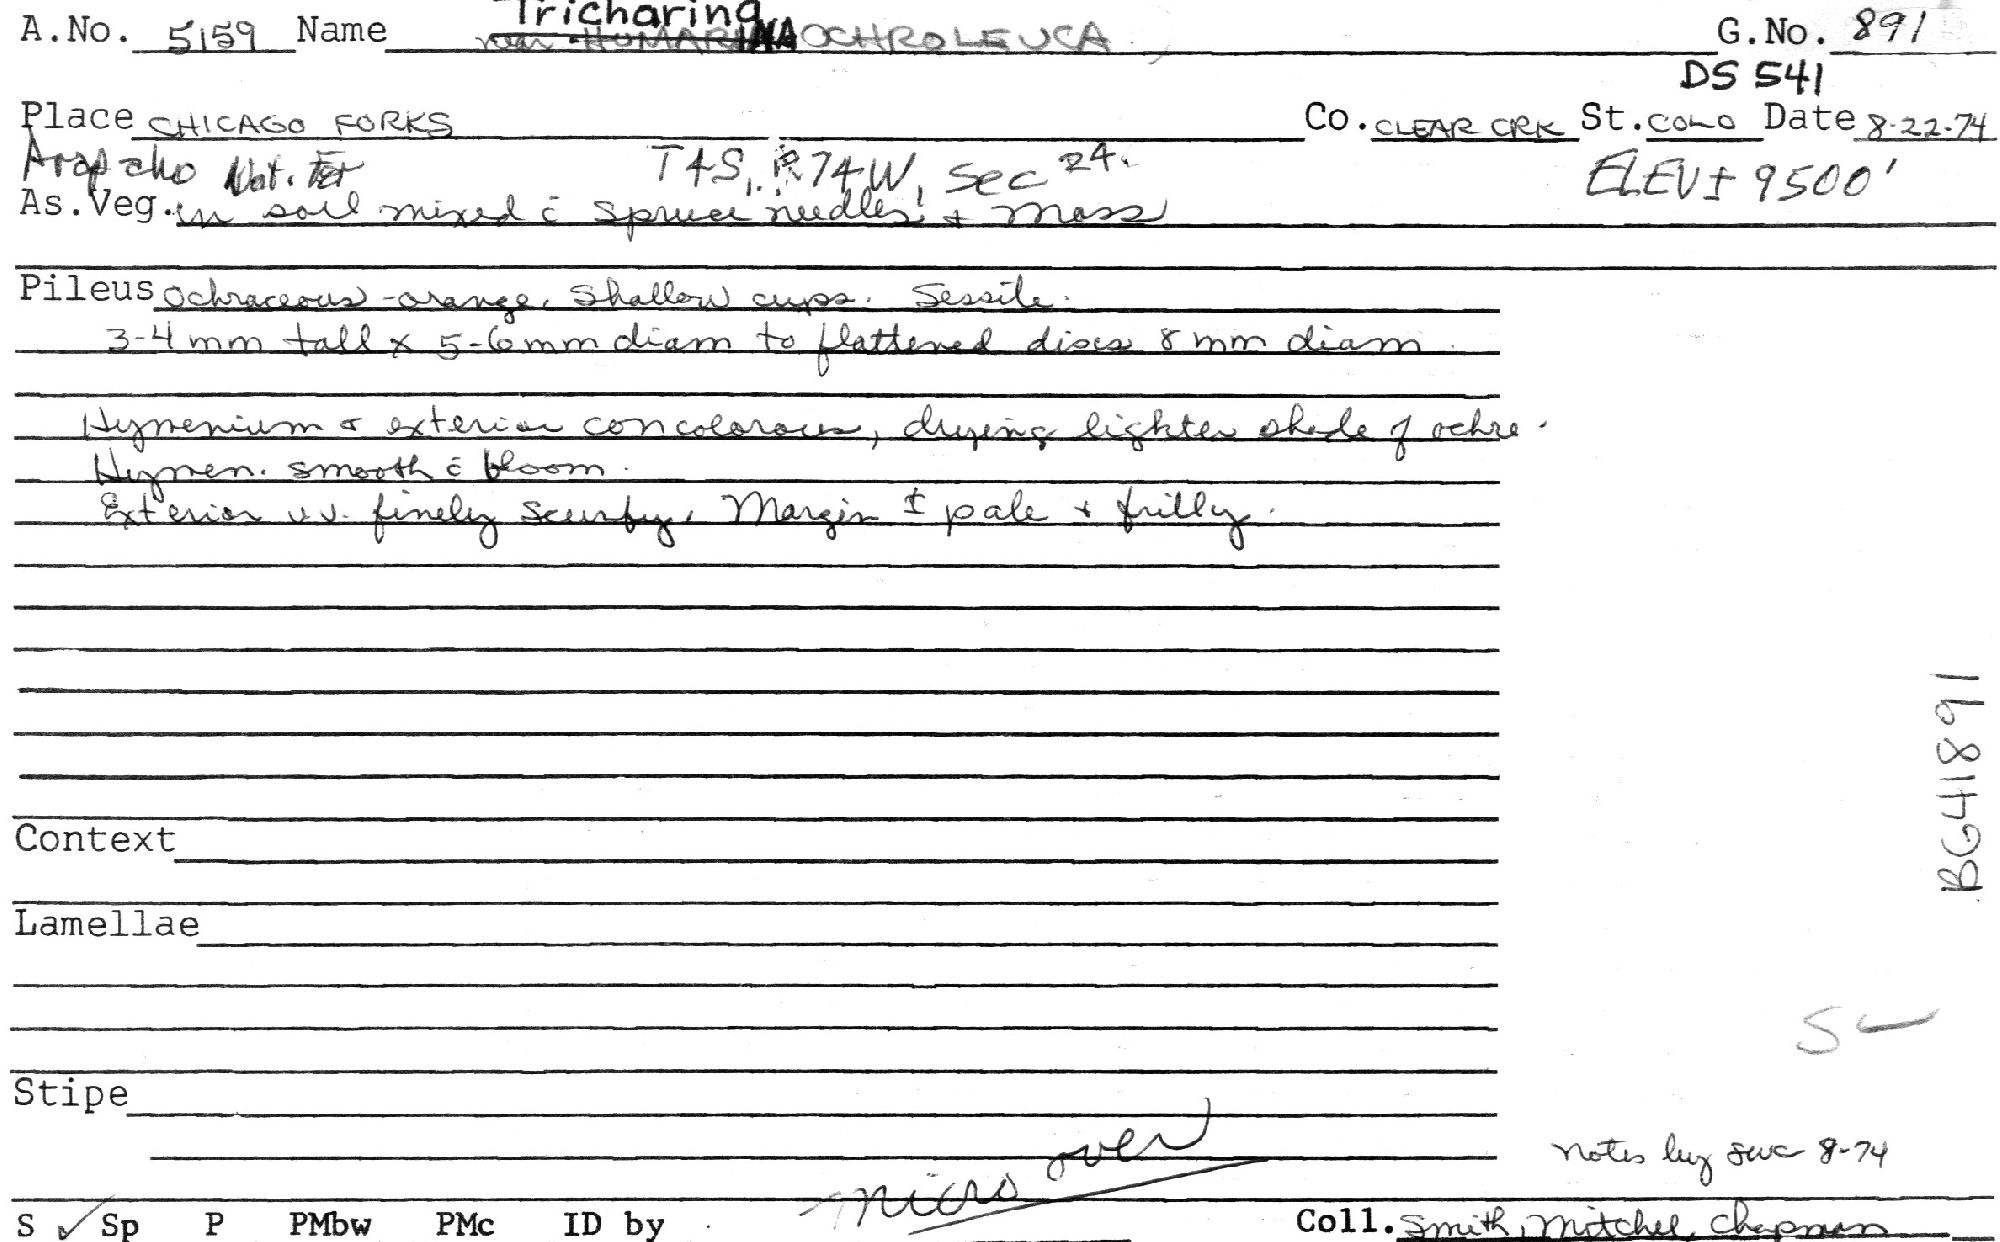 Tricharina
A.No. 5159 Name near HUMARINA OCHROLEUCA G.No. 891
DS 541
Place CHICAGO FORKS Co. CLEAR CRK St. COLO Date 8-22-74
Arapaho Nat. For T4S, R74W, Sec 24. ELEV ± 9500'
As.Veg. in soil mixed c̄ spruce needles + moss
Pileus Ochraceous-orange, shallow cups. Sessile.
3-4 mm tall x 5-6 mm diam to flattened discs 8 mm diam.
Hymenium & exterior concolorous, drying lighter shade of ochre.
Hymen. smooth c̄ bloom.
Exterior v.v. finely scurfy, Margin ± pale + frilly.
BG41891
Context
Lamellae
S
Stipe
micro over
Notes by swc 8-74
S ✓ Sp P PMbw PMc ID by Coll. Smith, Mitchel, Chapman